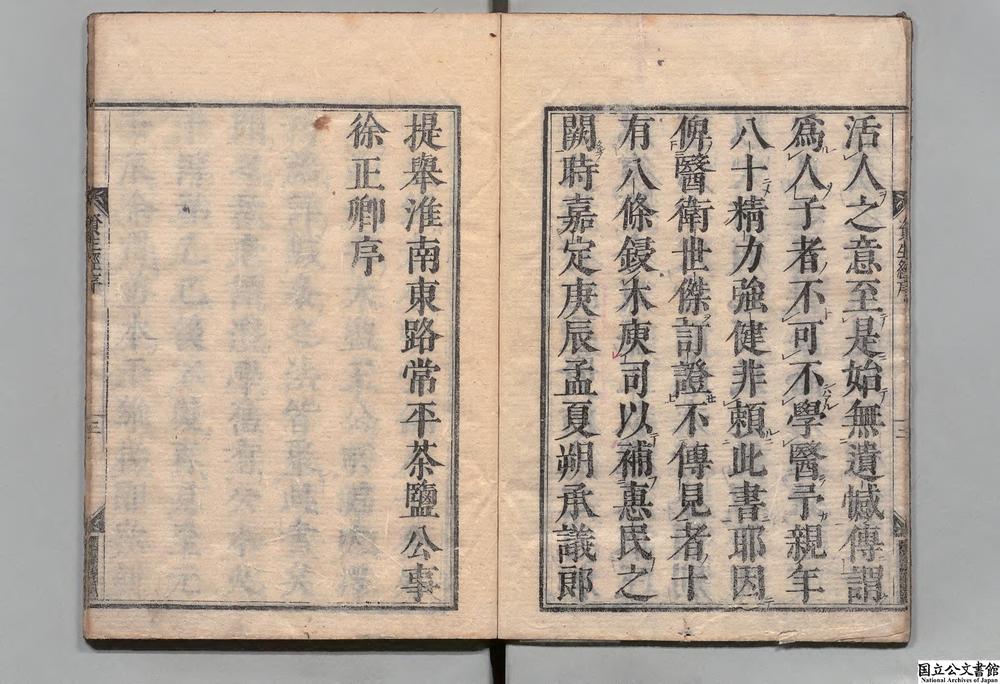 活人之意至是始無遺憾傳謂
爲人子者不可不學醫予親年
八十精力強健非賴此書耶因
俾醫衛世傑訂證不傳見者十
有八條鋟木庾司以補惠民之
闕時嘉定庚辰孟夏朔承議郎
提舉淮南東路常平茶鹽公事
徐正卿序
資生經序
国立公文書館
National Archives of Japan